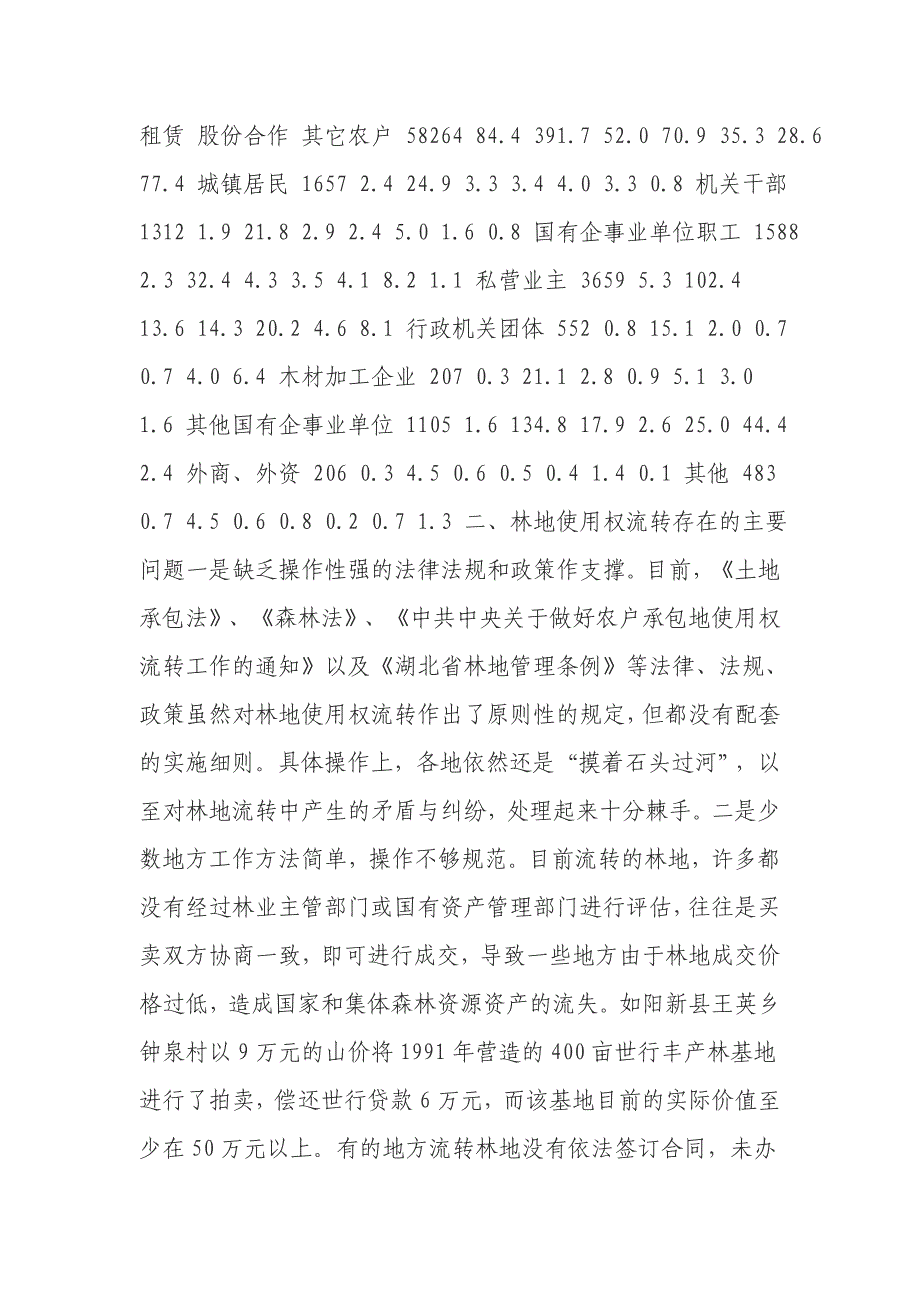 租赁 股份合作 其它农户 58264 84.4 391.7 52.0 70.9 35.3 28.6
77.4 城镇居民 1657 2.4 24.9 3.3 3.4 4.0 3.3 0.8 机关干部
1312 1.9 21.8 2.9 2.4 5.0 1.6 0.8 国有企事业单位职工 1588
2.3 32.4 4.3 3.5 4.1 8.2 1.1 私营业主 3659 5.3 102.4
13.6 14.3 20.2 4.6 8.1 行政机关团体 552 0.8 15.1 2.0 0.7
0.7 4.0 6.4 木材加工企业 207 0.3 21.1 2.8 0.9 5.1 3.0
1.6 其他国有企事业单位 1105 1.6 134.8 17.9 2.6 25.0 44.4
2.4 外商、外资 206 0.3 4.5 0.6 0.5 0.4 1.4 0.1 其他 483
0.7 4.5 0.6 0.8 0.2 0.7 1.3 二、林地使用权流转存在的主要
问题一是缺乏操作性强的法律法规和政策作支撑。目前，《土地
承包法》、《森林法》、《中共中央关于做好农户承包地使用权
流转工作的通知》以及《湖北省林地管理条例》等法律、法规、
政策虽然对林地使用权流转作出了原则性的规定，但都没有配套
的实施细则。具体操作上，各地依然还是“摸着石头过河”，以
至对林地流转中产生的矛盾与纠纷，处理起来十分棘手。二是少
数地方工作方法简单，操作不够规范。目前流转的林地，许多都
没有经过林业主管部门或国有资产管理部门进行评估，往往是买
卖双方协商一致，即可进行成交，导致一些地方由于林地成交价
格过低，造成国家和集体森林资源资产的流失。如阳新县王英乡
钟泉村以 9 万元的山价将 1991 年营造的 400 亩世行丰产林基地
进行了拍卖，偿还世行贷款 6 万元，而该基地目前的实际价值至
少在 50 万元以上。有的地方流转林地没有依法签订合同，未办